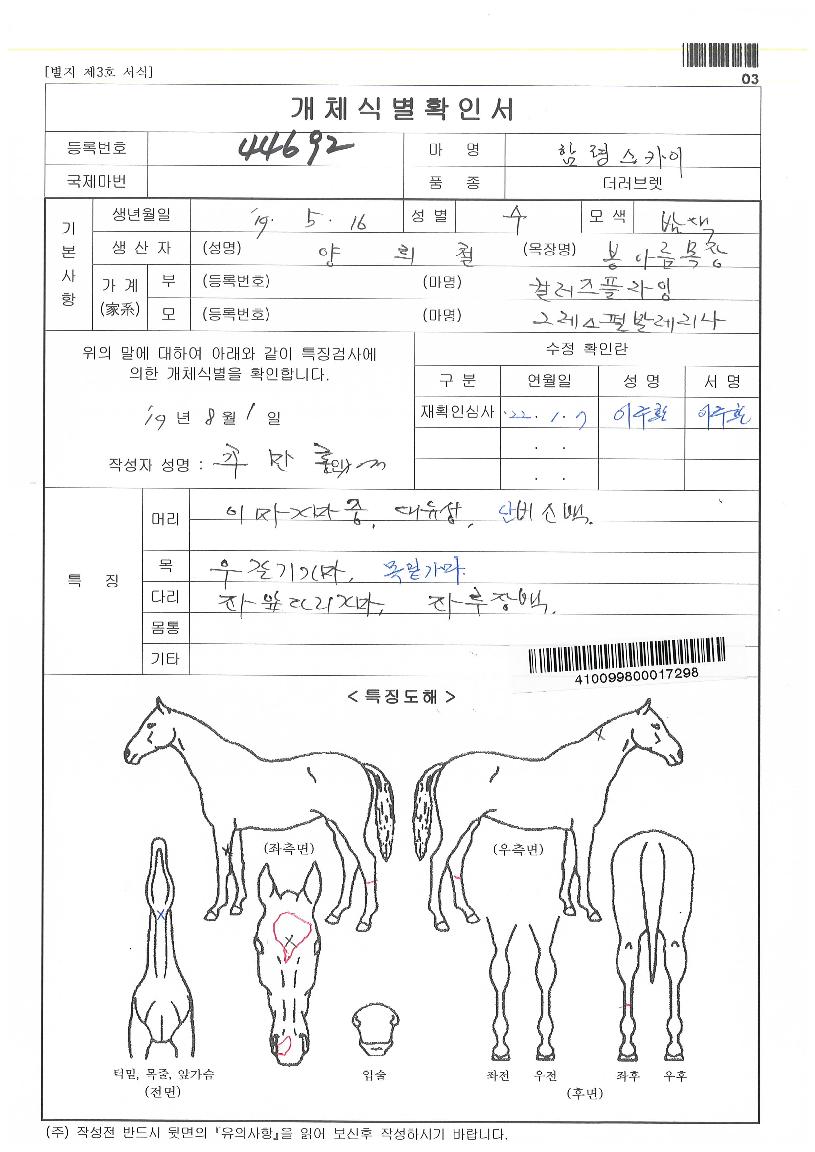 [별지 제3호 서식]
03
개체식별확인서
등록번호 44692 마 명 함령스카이
국제마번 품 종 더러브렛
기본사항
생년월일 '19. 5. 16 성별 수 모색 밤색
생 산 자 (성명) 양 희 철 (목장명) 봉아름목장
가 계 (家系) 부 (등록번호) (마명) 컬러즈플라잉
모 (등록번호) (마명)
위의 말에 대하여 아래와 같이 특징검사에
의한 개체식별을 확인합니다.
'19 년 8 월 1 일
작성자 성명 :
수정 확인란
구 분 연월일 성 명 서 명
재확인심사 '22. 1. 7 이주환 이주환
. .
. .
특 징
머리 이마가마중, 대유성, 단비소백.
목 우줄기가마, 목밑가마.
다리 좌앞다리가마, 좌후장백.
몸통
기타
410099800017298
< 특징도해 >
(좌측면) (우측면)
턱밑, 목줄, 앞가슴
(전면)
입술
좌전 우전 좌후 우후
(후면)
(주) 작성전 반드시 뒷면의 『유의사항』을 읽어 보신후 작성하시기 바랍니다.